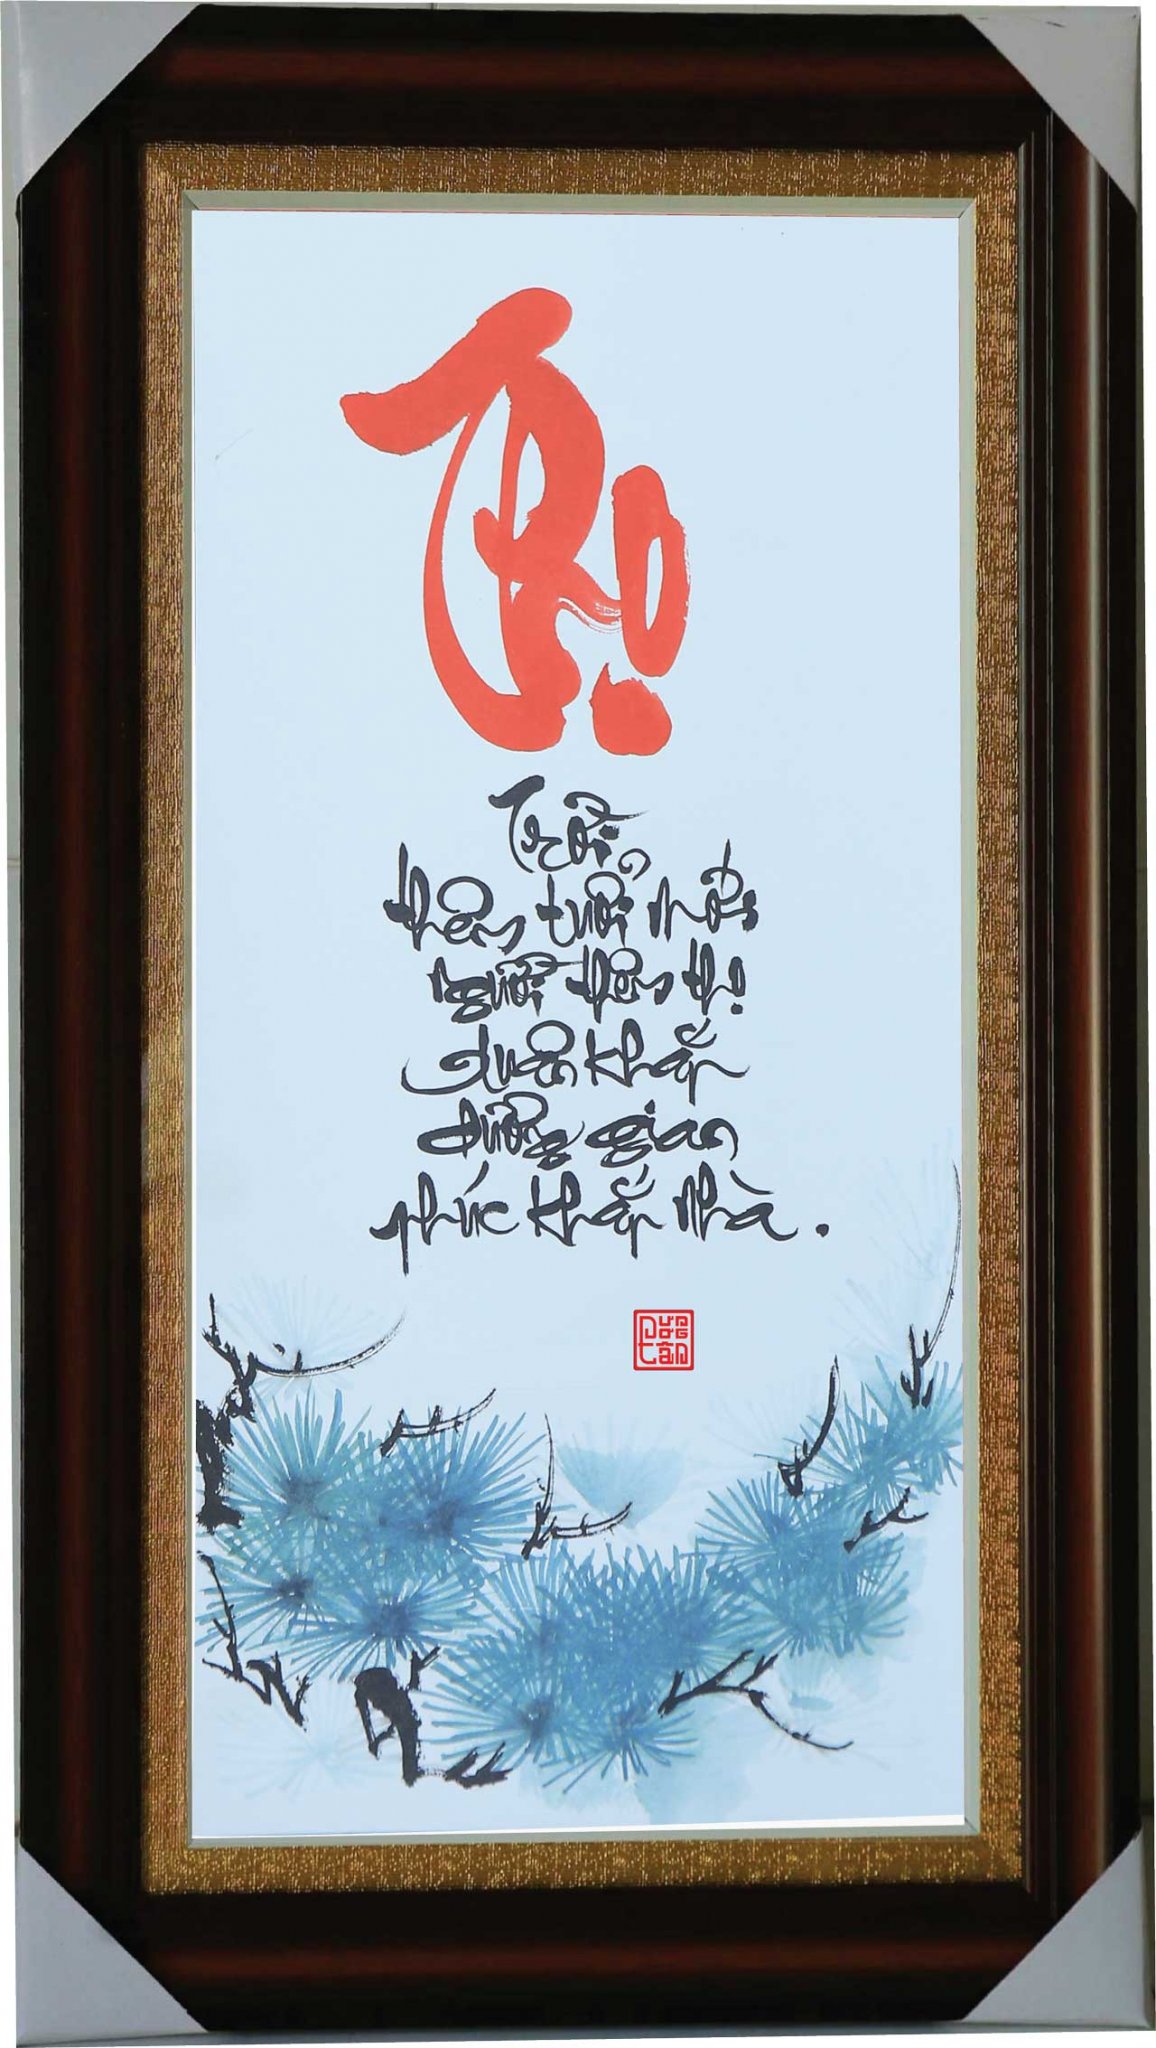 Thọ
Trời
thêm tuổi mới
người thêm thọ
Xuân khắp
dương gian
phúc khắp nhà.
Dương
tân